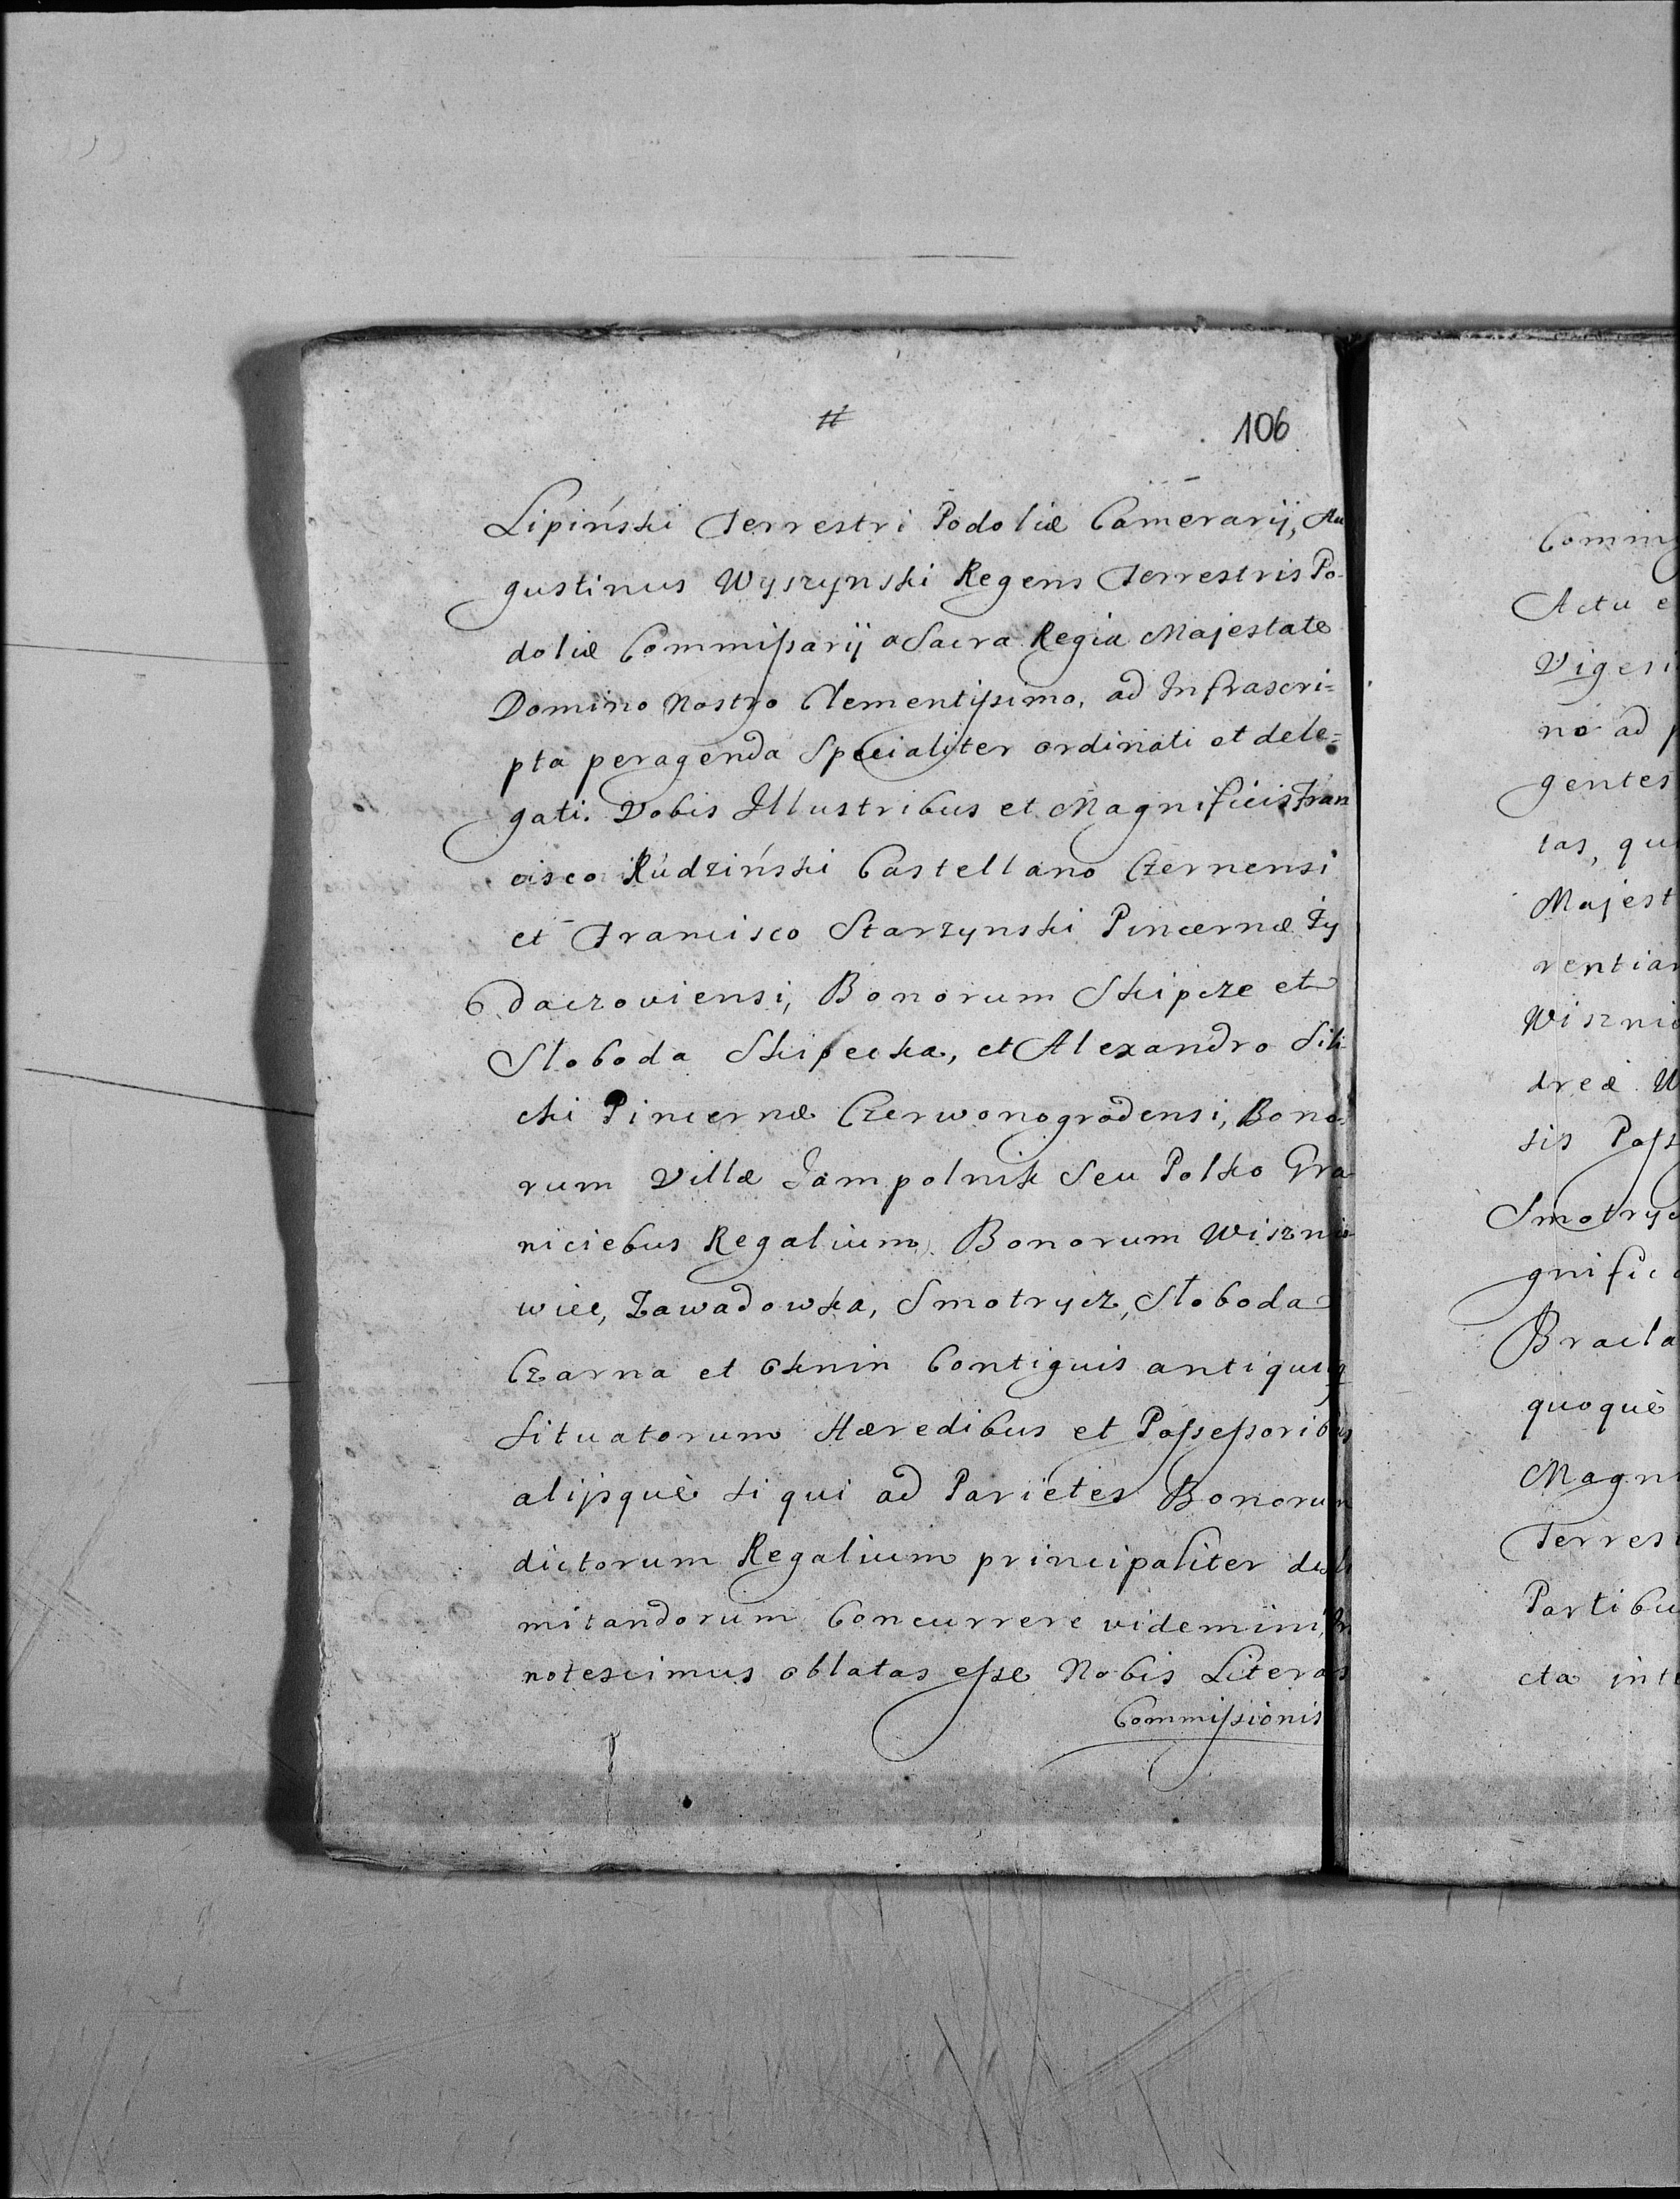 106
Lipiński Terrestri Podoliæ Camerarij, Au
gustinus Wyszynski Regens Terrestris Po-
doliæ Commissarij a Sacra Regia Majestate
Domino Nostro Clementissimo, ad Infrascri=
pta peragenda Specialiter ordinati et dele=
gati. Vobis Illustribus et Magnificis Fran
cisco Rudziński Castellano Czernensi
et Francisco Starzynski Pincernæ Zy
daczoviensi, Bonorum Skipcze et
Sloboda Skipecka, et Alexandro Sili
cki Pincernæ Czerwonogrodensi, Bono
rum Villæ Jampolnik Seu Polko Gra
niciebus Regalium Bonorum Wisznio
wiec, Zawadowka, Smotrycz, Słoboda
Czarna et Oknin Contiguis antiquis
Situatorum Hæredibus et Possessoribus
alijsquè si qui ad Parietes Bonorum
dictorum Regalium principaliter
mitandorum Concurrere videmini, In
notescimus oblatas esse Nobis Literas
Commissionis
Commi
Actu e
Vigesi
no ad p
gentes
tas, qu
Majest
rentiar
Wisznio
dreæ W
sis Poss
Smotryc
gnific
Bracla
quoquè
Magni
Terrest
Partibu
cta inte